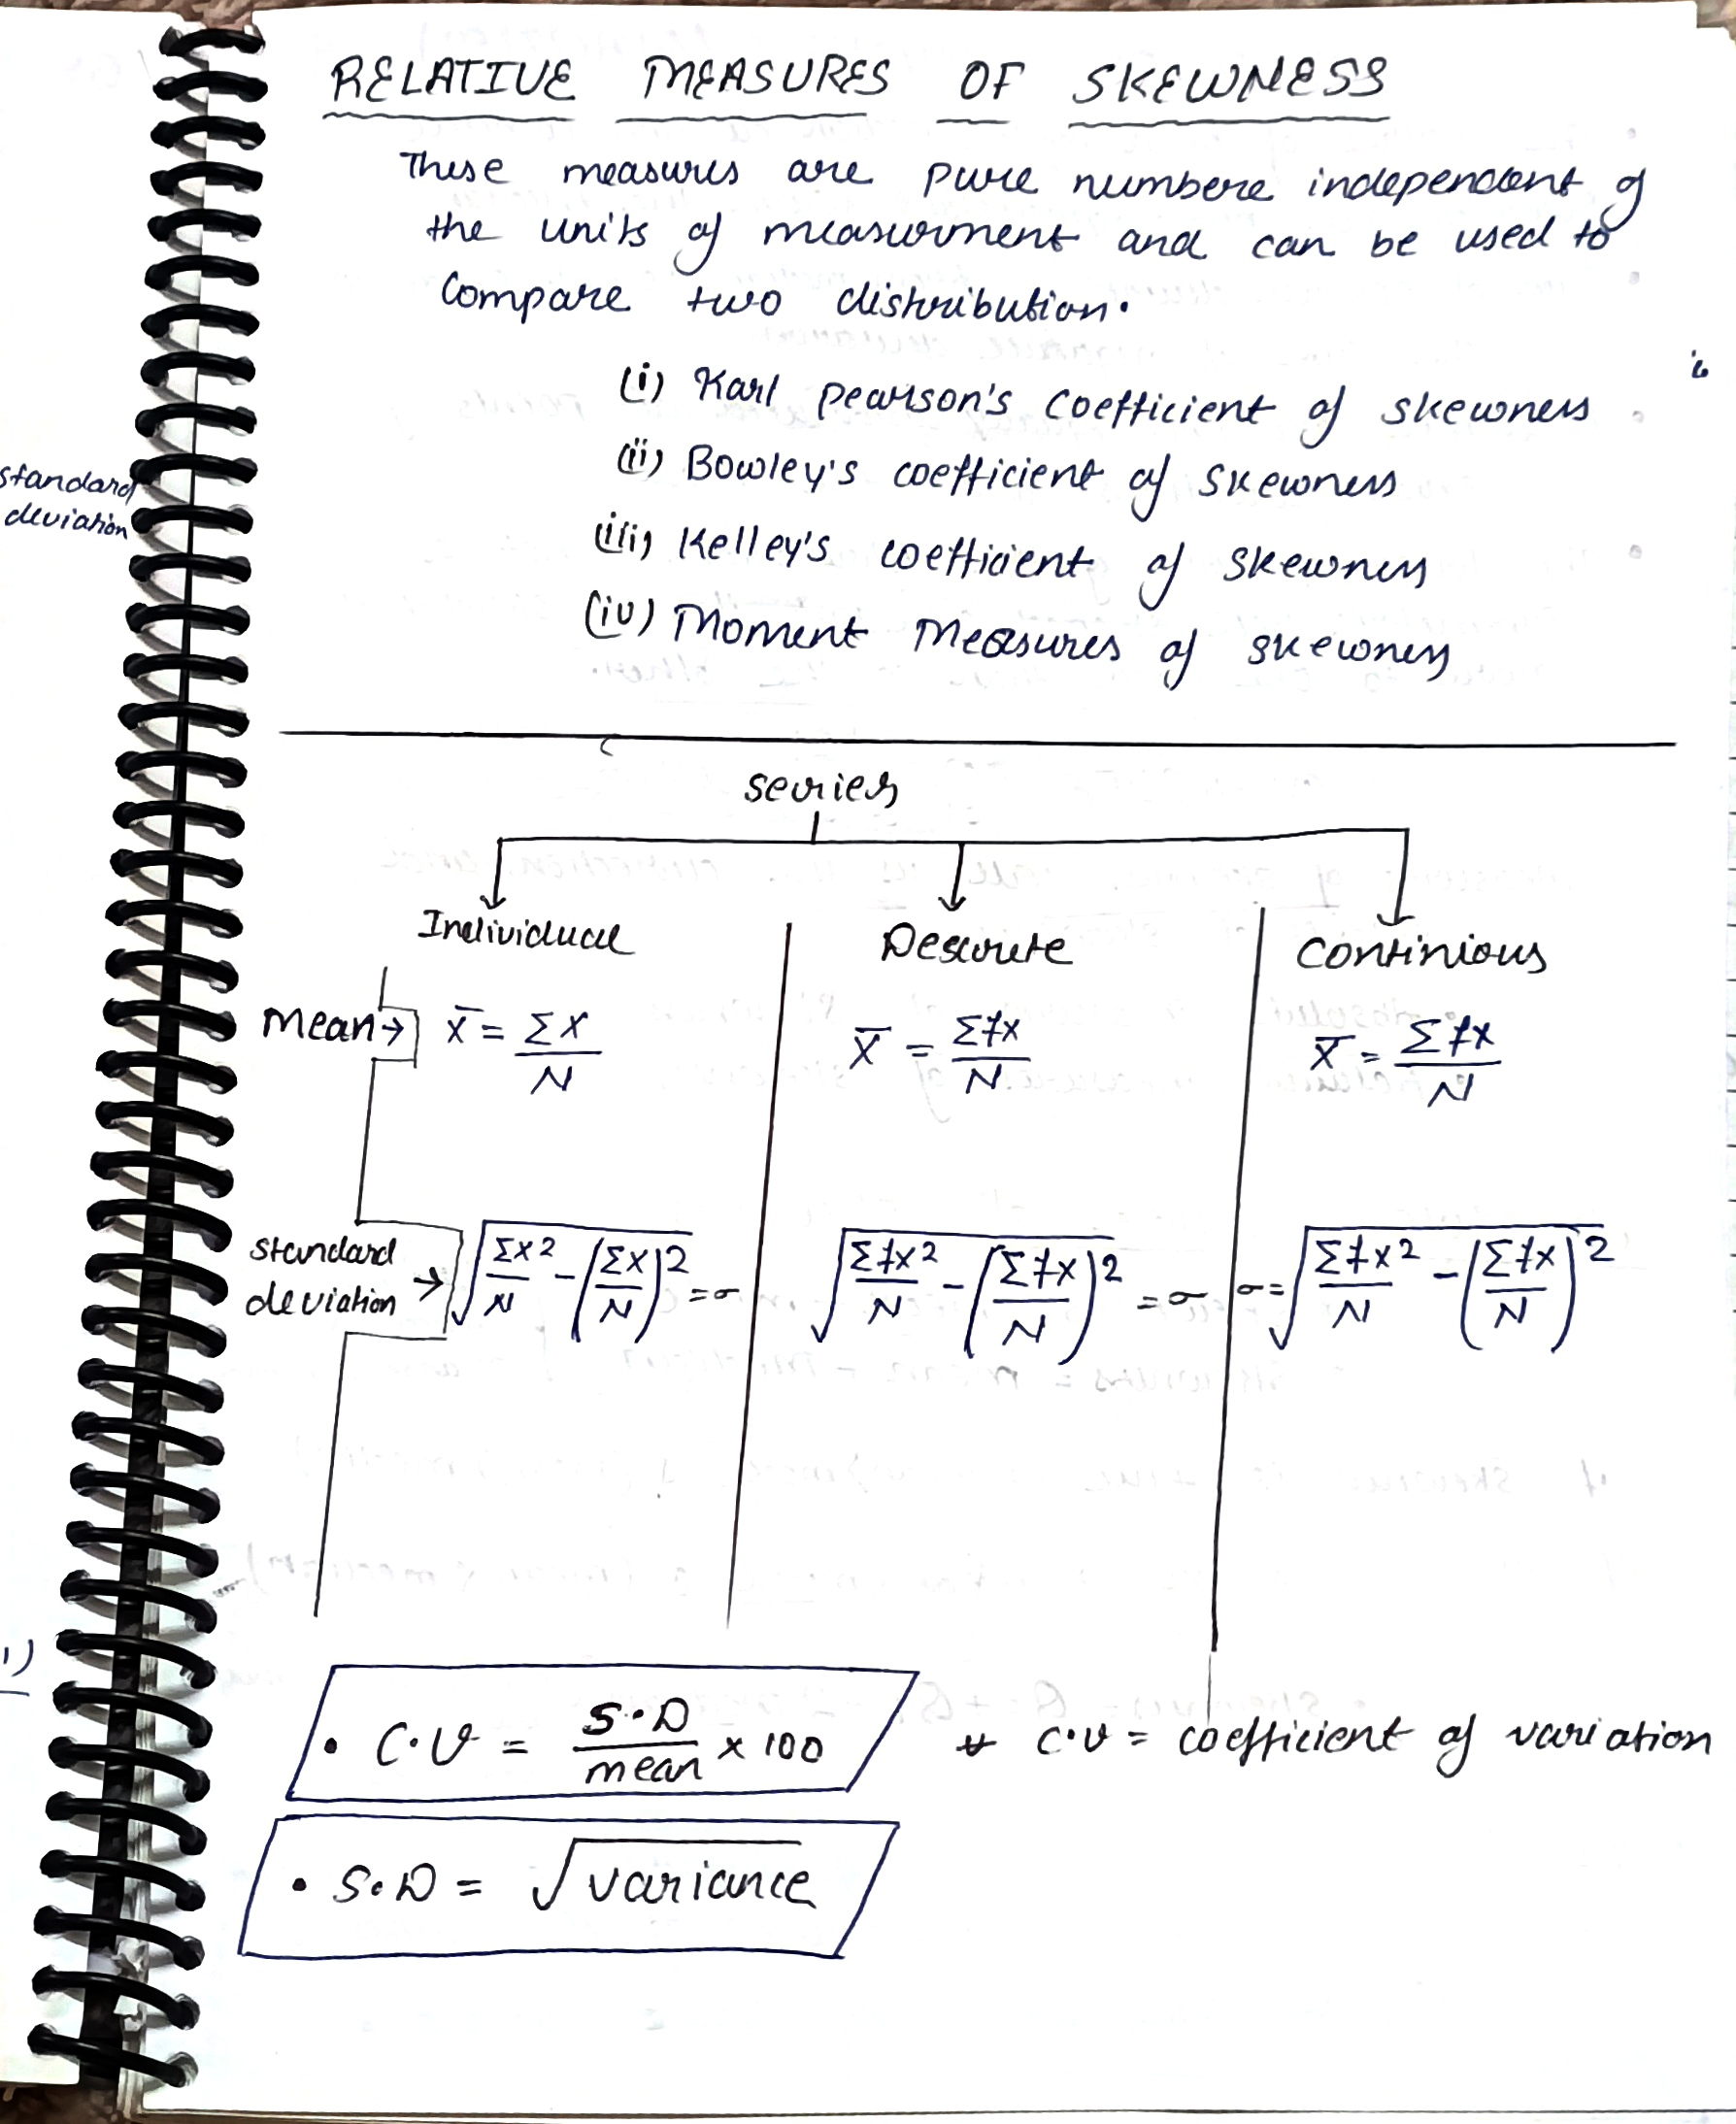 RELATIVE MEASURES OF SKEWNESS
These measures are pure numbere independent of
the units of measurment and can be used to
Compare two distribution.
(i) Karl pearson's Coefficient of skewness
(ii) Bowley's coefficient of skewness
(iii) Kelley's coefficient of skewness
(iv) Moment Measures of skewness
standard
deviation
series
Individual Descrete Continious
Mean→ x̄ = ΣX/N X̄ = Σfx/N X̄ = Σfx/N
standard deviation → √(Σx²/N - (Σx/N)²) = σ √(Σfx²/N - (Σfx/N)²) = σ σ = √(Σfx²/N - (Σfx/N)²)
• C.V = S.D/mean × 100 * C.V = coefficient of variation
• S.D = √variance